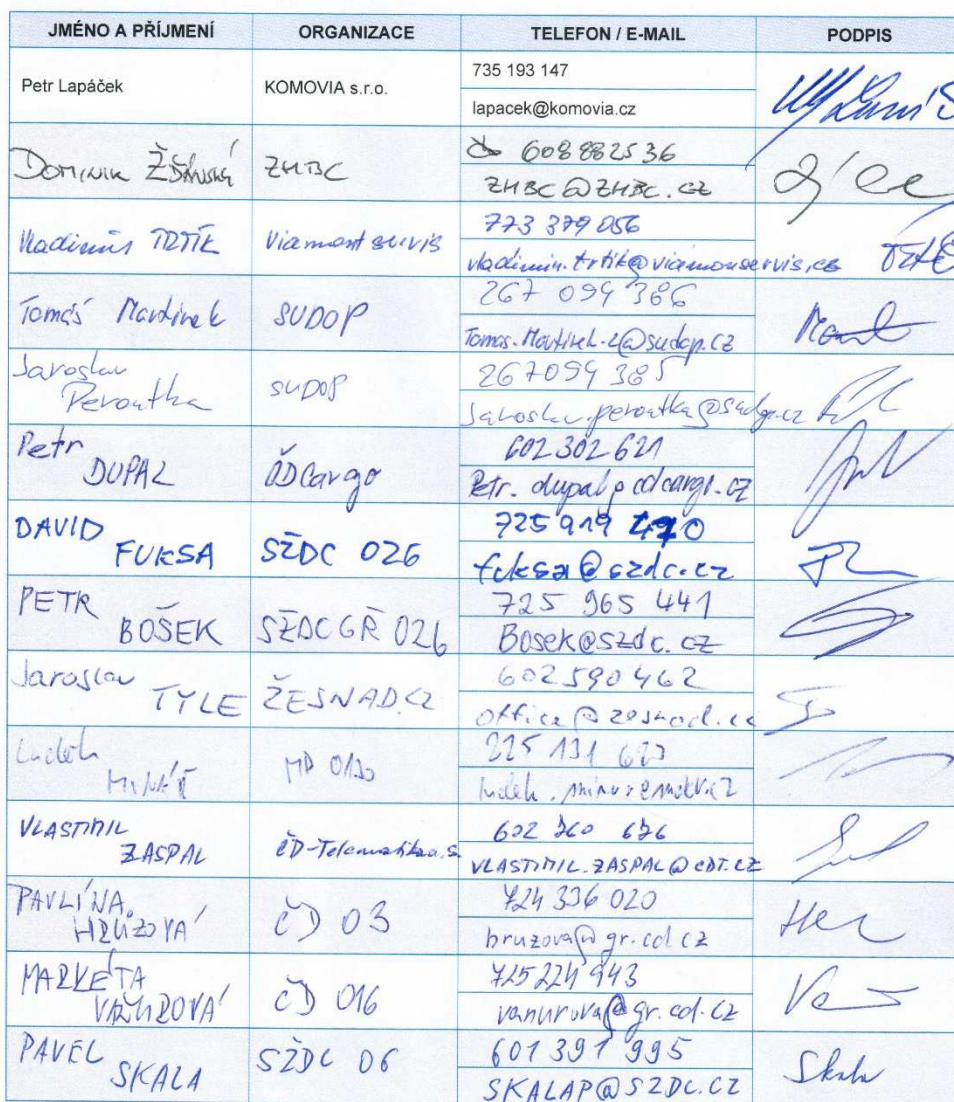 JMÉNO A PŘÍJMENÍ ORGANIZACE TELEFON / E-MAIL PODPIS
Petr Lapáček KOMOVIA s.r.o. 735 193 147
lapacek@komovia.cz
Dominik ZHBC 608 882 536
ZHBC@ZHBC.CZ
Vladimír TRTÍK Viamont servis 773 379 056
vladimir.trtik@viamonservis.cz
Tomáš Martinek SUDOP 267 094 386
Tomas.Martinek.2@sudop.cz
Jaroslav Peroutka SUDOP 267094 385
jaroslav.peroutka@sudop.cz
Petr DUPAL ČDCargo 602 302 621
Petr.dupal@cdcargo.cz
DAVID FUKSA SŽDC 026 725 919 470
fuksa@szdc.cz
PETR BOŠEK SŽDC GŘ 026 725 965 441
Bosek@szdc.cz
Jaroslav TYLE ŽESNAD.CZ 602 590 462
office@zesnad.cz
Luděk MINÁŘ MD 0130 225 131
ludek.minar@mdcr.cz
VLASTIMIL ZASPAL ČD-Telematika a.s. 602 760 636
VLASTIMIL.ZASPAL@CDT.CZ
PAVLÍNA HRŮZOVÁ ČD 03 724 336 020
hruzova@gr.cd.cz
MARKÉTA VAŇUROVÁ ČD 016 725 224 943
vanurova@gr.cd.cz
PAVEL SKALA SŽDC 06 601 391 995 Skala
SKALAP@SZDC.CZ